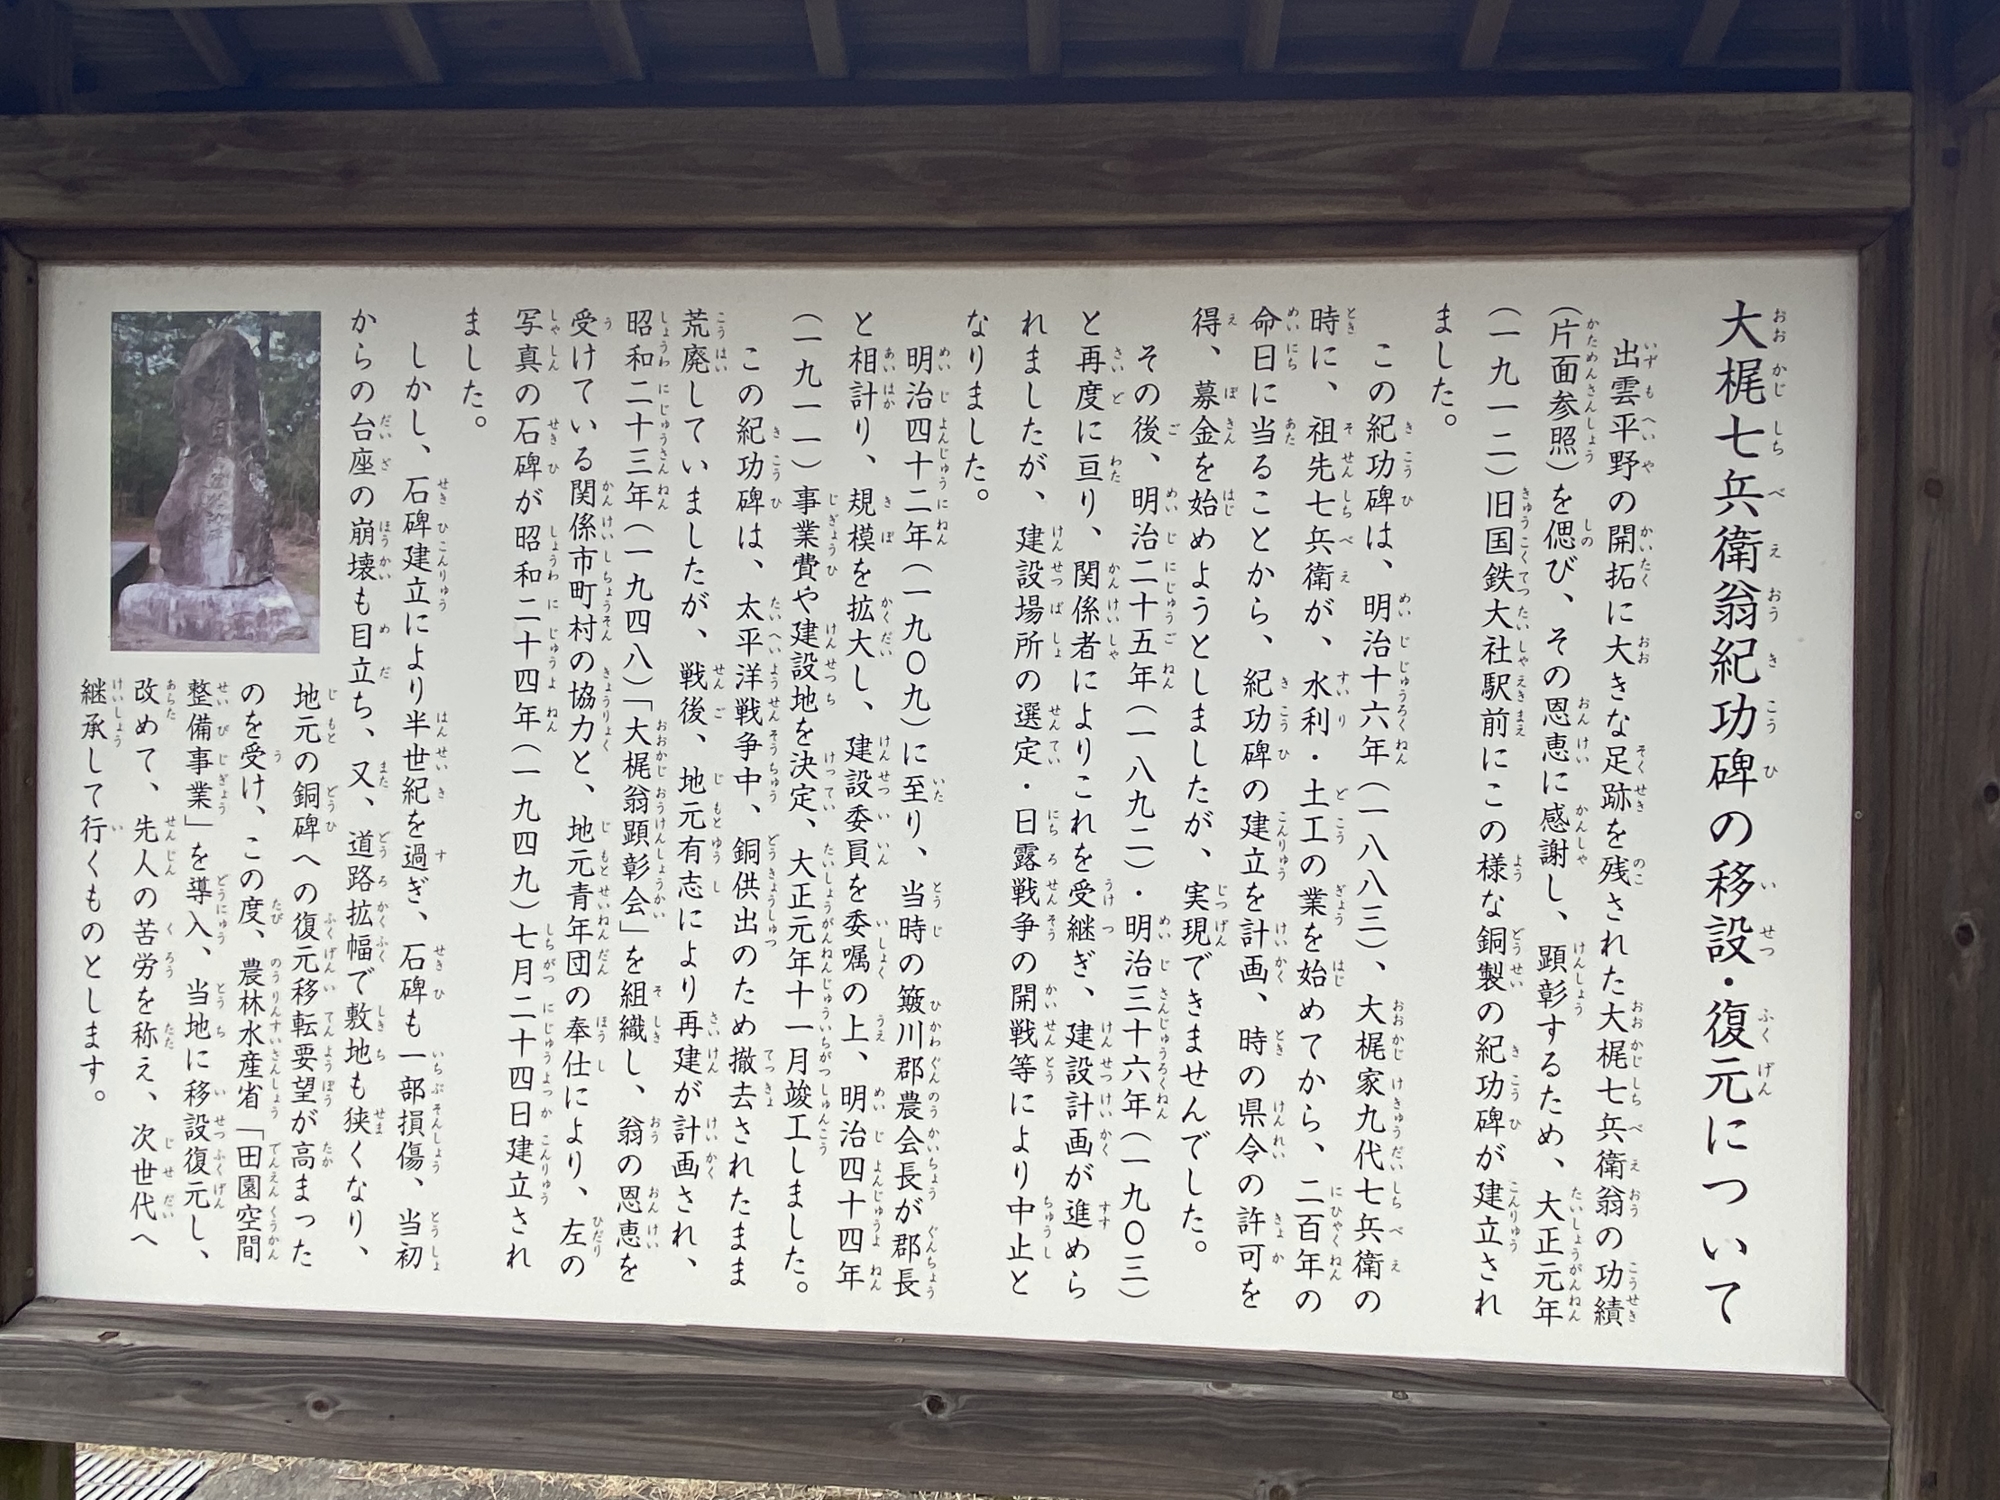 大梶七兵衛翁紀功碑の移設・復元について
出雲平野の開拓に大きな足跡を残された大梶七兵衛翁の功績
(片面参照)を偲び、その恩恵に感謝し、顕彰するため、大正元年
(一九一二)旧国鉄大社駅前にこの様な銅製の紀功碑が建立され
ました。
この紀功碑は、明治十六年(一八八三)、大梶家九代七兵衛の
時に、祖先七兵衛が、水利・土工の業を始めてから、二百年の
命日に当ることから、紀功碑の建立を計画、時の県令の許可を
得、募金を始めようとしましたが、実現できませんでした。
その後、明治二十五年(一八九二)・明治三十六年(一九〇三)
と再度に亘り、関係者によりこれを受継ぎ、建設計画が進めら
れましたが、建設場所の選定・日露戦争の開戦等により中止と
なりました。
明治四十二年(一九〇九)に至り、当時の簸川郡農会長が郡長
と相計り、規模を拡大し、建設委員を委嘱の上、明治四十四年
(一九一一)事業費や建設地を決定、大正元年十一月竣工しました。
この紀功碑は、太平洋戦争中、銅供出のため撤去されたまま
荒廃していましたが、戦後、地元有志により再建が計画され、
昭和二十三年(一九四八)「大梶翁顕彰会」を組織し、翁の恩恵を
受けている関係市町村の協力と、地元青年団の奉仕により、左の
写真の石碑が昭和二十四年(一九四九)七月二十四日建立され
ました。
しかし、石碑建立により半世紀を過ぎ、石碑も一部損傷、当初
からの台座の崩壊も目立ち、又、道路拡幅で敷地も狭くなり、
地元の銅碑への復元移転要望が高まった
のを受け、この度、農林水産省「田園空間
整備事業」を導入、当地に移設復元し、
改めて、先人の苦労を称え、次世代へ
継承して行くものとします。